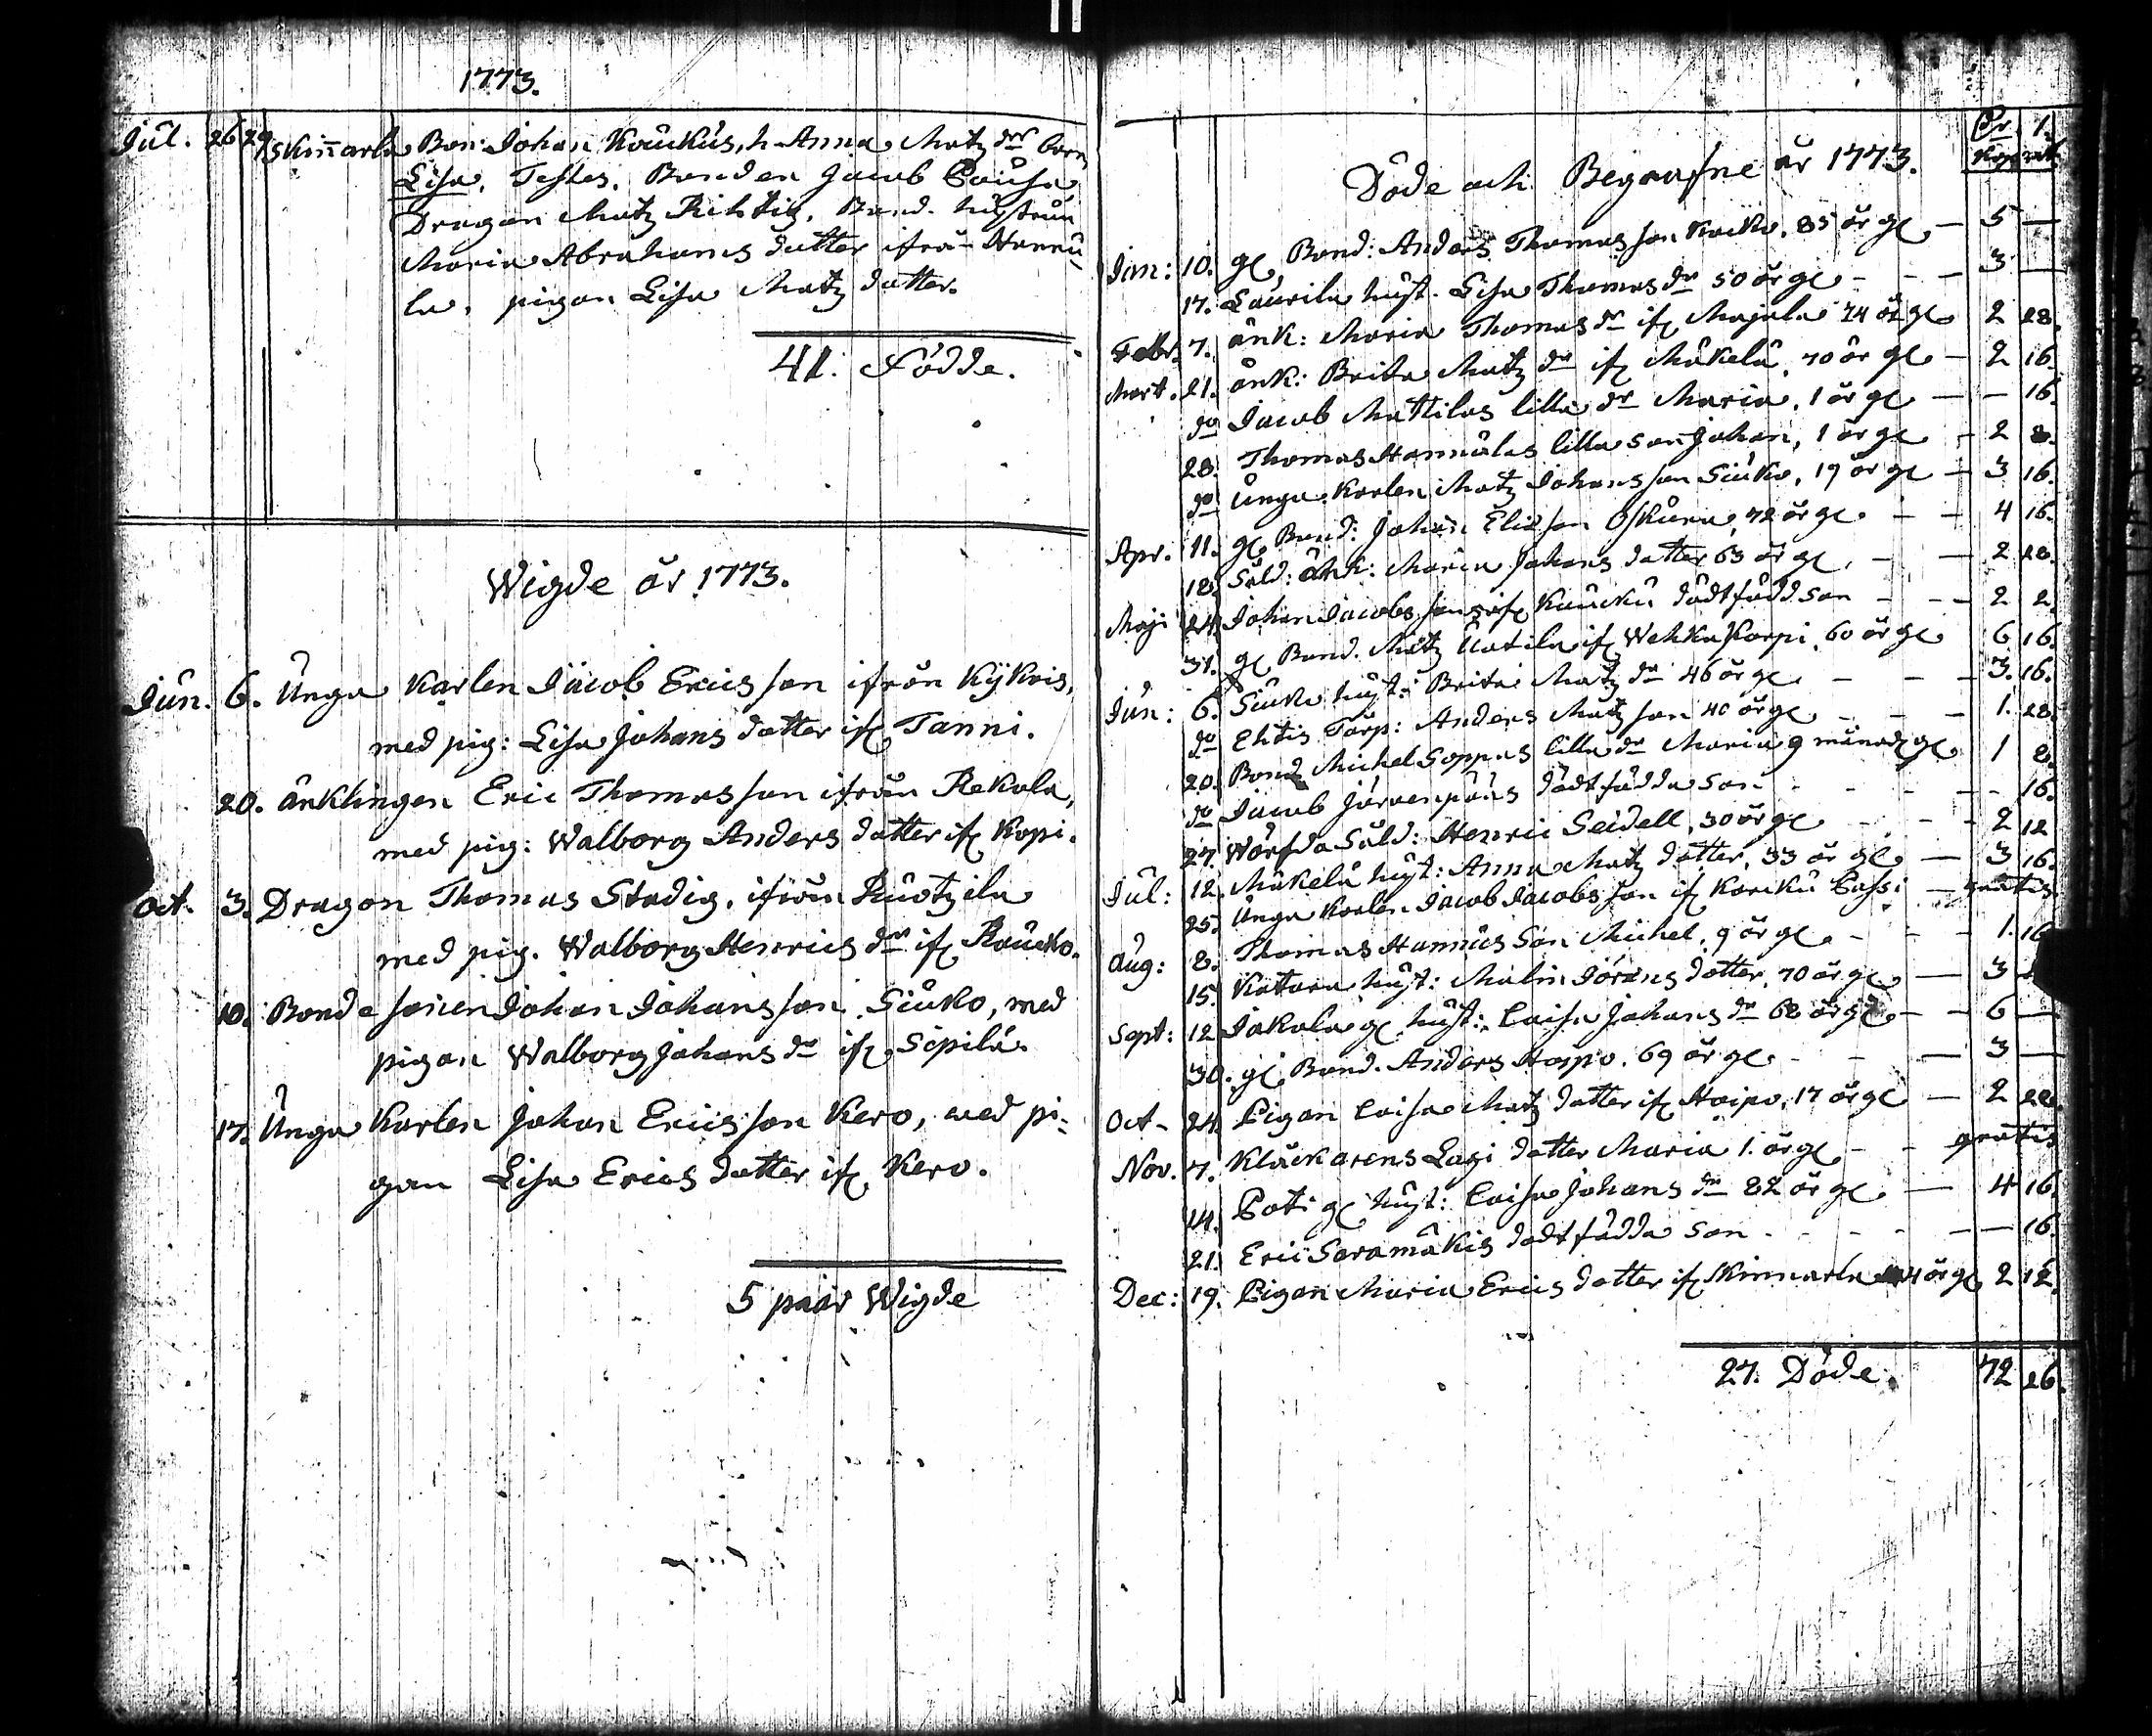 1773.
Jul. 26 29 Skinnarla Bon: Johan Kaukus, h. Anna Matz dr barn
Lisa. Testes. Bonden Jacob Pausa
Dragon Matz Richtig. Bond. hustrun
Maria Abrahams dotter ifrån Hannu
la, pigan Lisa Matz dotter.
41. Födde.
Wigde år 1773.
Jun. 6. Unga Karlen Jacob Ericsson ifrån Kÿkris,
med pig: Lisa Johans dotter if Tanni.
20. änklingen Eric Thomasson ifrån Rekola,
med pig: Walborg Anders dotter if Kopi.
Oct. 3. Dragon Thomas Stadig, ifrån Ruotzila
med pig. Walborg Henrics dr if Raucko.
10. Bondesonen Johan Johansson Siuko, med
pigan Walborg Johans dr if Sipilä.
17. Unga Karlen Johan Ericsson Kero, med pi-
gan Lisa Erics dotter if Kero.
5 paar Wigde
Döde och Begrafne år 1773.
Jan: 10. gl Bond: Anders Thomasson Kacko. 85 år gl — 5 —
17. Laurila hust. Lisa Thomas dr 50 år gl - - 3 —
Febr. 7. änk: Maria Thomas dr if Majala 74 år gl 2 28.
Mart. 21. änk: Brita Matz dr if Mäkelä, 70 år gl - 2 16.
do Jacob Mattilas lilla dr Maria. 1 år gl — — 16.
28. Thomas Hannulas lilla son Johan, 1 år gl - 2 8.
do Unga Karlen Matz Johansson Siuko, 19 år gl - 3 16.
Apr. 11. gl Bond: Johan Eliasson Oskura, 72 år gl - - 4 16.
18. Sold: änk: Maria Johans dotter 63 år gl. - — 2 28.
Maji 24. Johan Jacobssons if Kaucku dödfödd son - - - 2 2.
31. gl Bond. Matz Uotila if Wehkakorpi. 60 år gl 6 16.
Jun: 6. Siuko hust: Brita Matz dr 46 år gl - - - 3. 16.
do Ehtis Torp: Anders Matzson 40 år gl - - - 1. 28.
20. Bond Michel Soppas lilla dr Maria 9 månad gl 1 8.
do Jacob Järvenpääs dödtfödda son - - - - - 16.
27. Wärfda Sold: Henric Seidell, 30 år gl - - - 2 12
Jul: 12. Mäkelä hust: Anna Matz dotter, 33 år gl. — 3 16.
25. Unga Karlen Jacob Jacobsson if Karcku Passi — gratis.
Aug: 8. Thomas Hannus Son Michel, 9 år gl. - - - 1. 16
15. Katara hust: Malin Jörans dotter, 70 år gl — 3
Sept: 12 Jakola gl hust: Caisa Johans dr 68 år gl - - 6 —
30. gl Bond. Anders Haipo. 69 år gl - - — 3 —
Oct- 24. Pigan Caisa Matz dotter if Haipo, 17 år gl — 2 22.
Nov. 7. Klåckarens Lagi dotter Maria 1. år gl - - gratis
14. Pati gl hust: Caisa Johans dr 82 år gl — 4 16.
21. Eric Saramäkis dödtfödda son - - - - — 16.
Dec: 19. Pigan Maria Erics dotter if Skinnarla år gl 2 12.
27. Döde. 72 26.